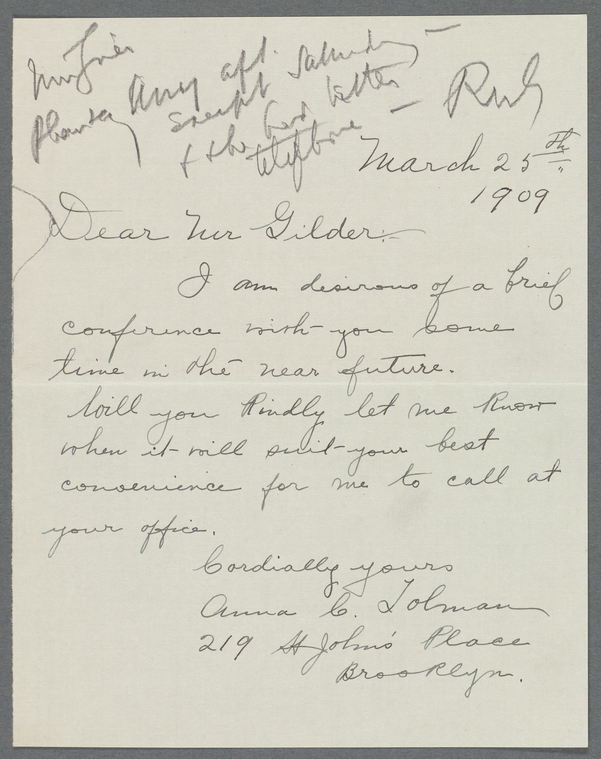 Any aft.
except Saturday —
& she had better
telephone —
March 25th
1909
Dear Mr Gilder:—
I am desirous of a brief
conference with you some
time in the near future.
Will you kindly let me know
when it will suit your best
convenience for me to call at
your office.
Cordially yours
Anna C. Tolman
219 St John's Place
Brooklyn.